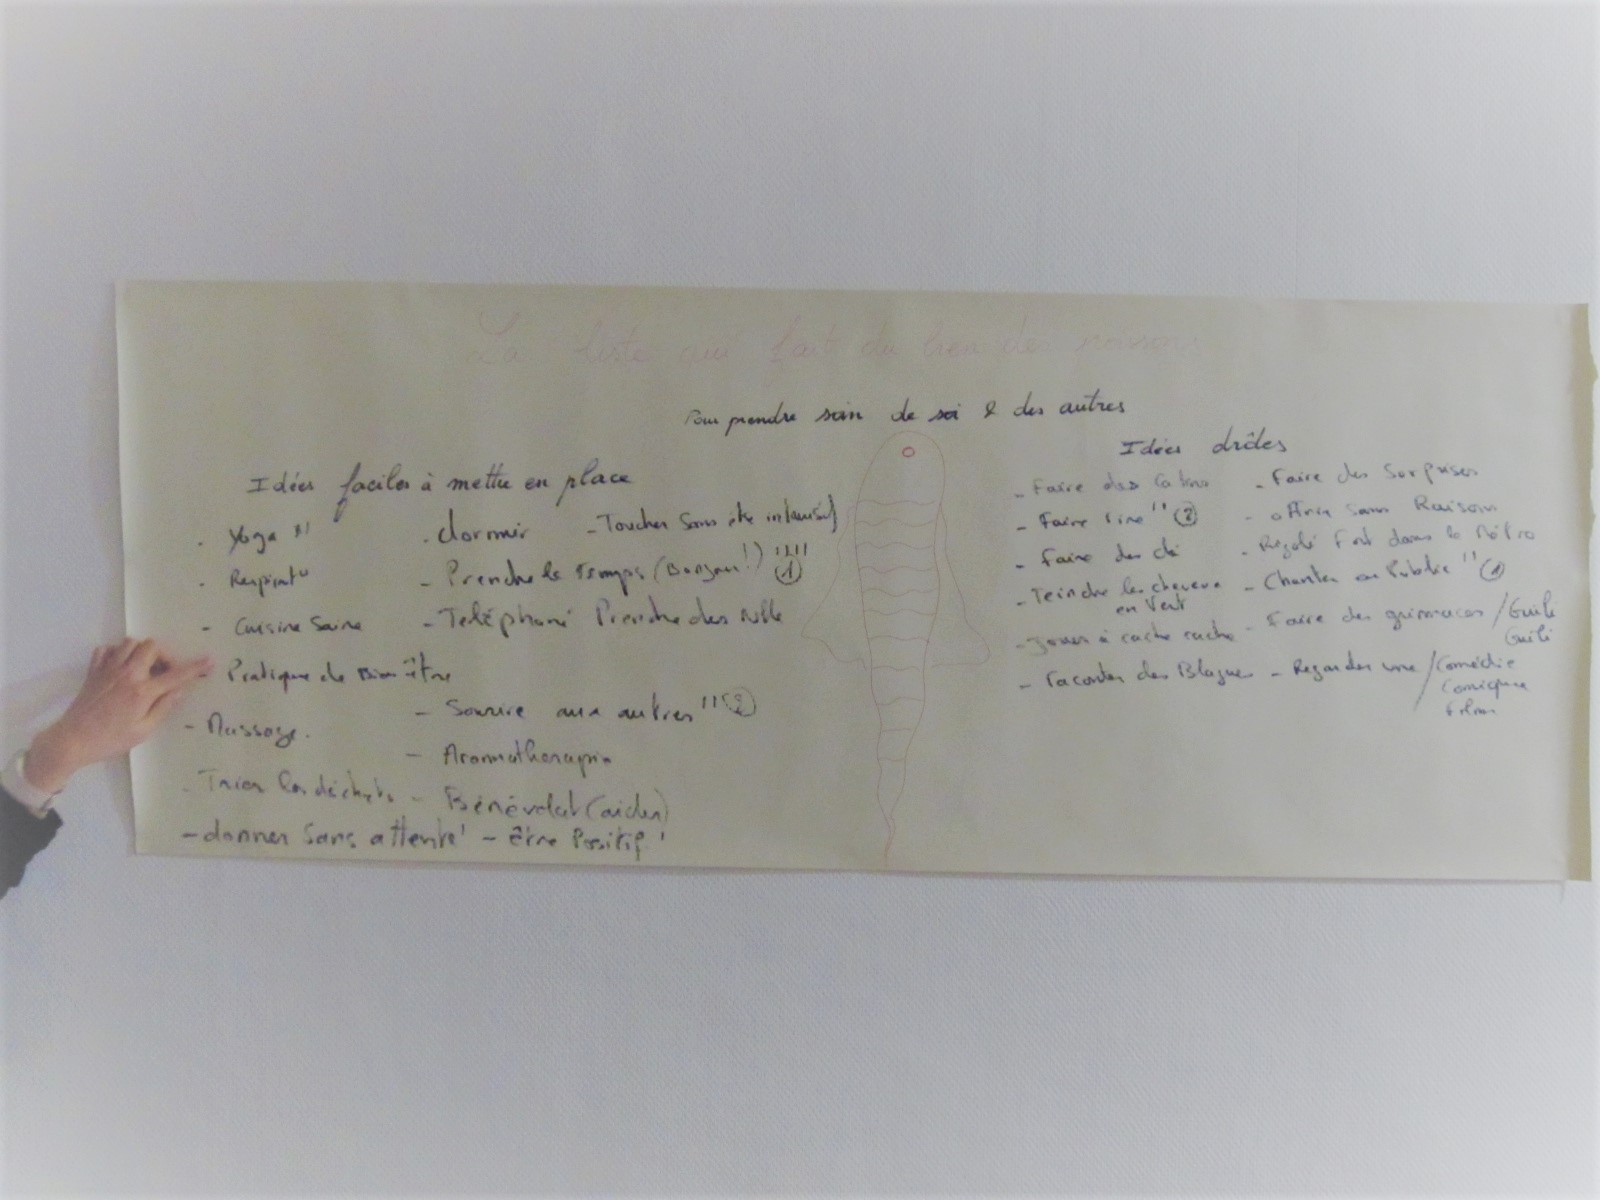 La liste qui fait du bien des
Pour prendre soin de soi & des autres
Idées faciles à mettre en place
. Yoga
. Respirat°
- Cuisine Saine
- Pratique de Bien-être
- Massage.
. Trier les déchets
- donner Sans attente
. dormir
- Toucher Sans être intrusif
- Prendre le Temps (Bonjour!) 1
- Teléphoné Prendre des
- Sourire aux autres 2
- Aromatherapie
- Bénévolat (aider)
- être Positif
Idées drôles
- Faire des
- Faire rire 2
- Faire des
- Teindre les cheveux
en Vert
- Jouer à cache cache
- raconter des Blagues
- Faire des Sorprises
- offrir sans Raison
- Fort dans le Métro
- Chanter en Public 1
- Faire des grimaces / Guili
Guili
- Regarder une / Comédie
Comique
Film